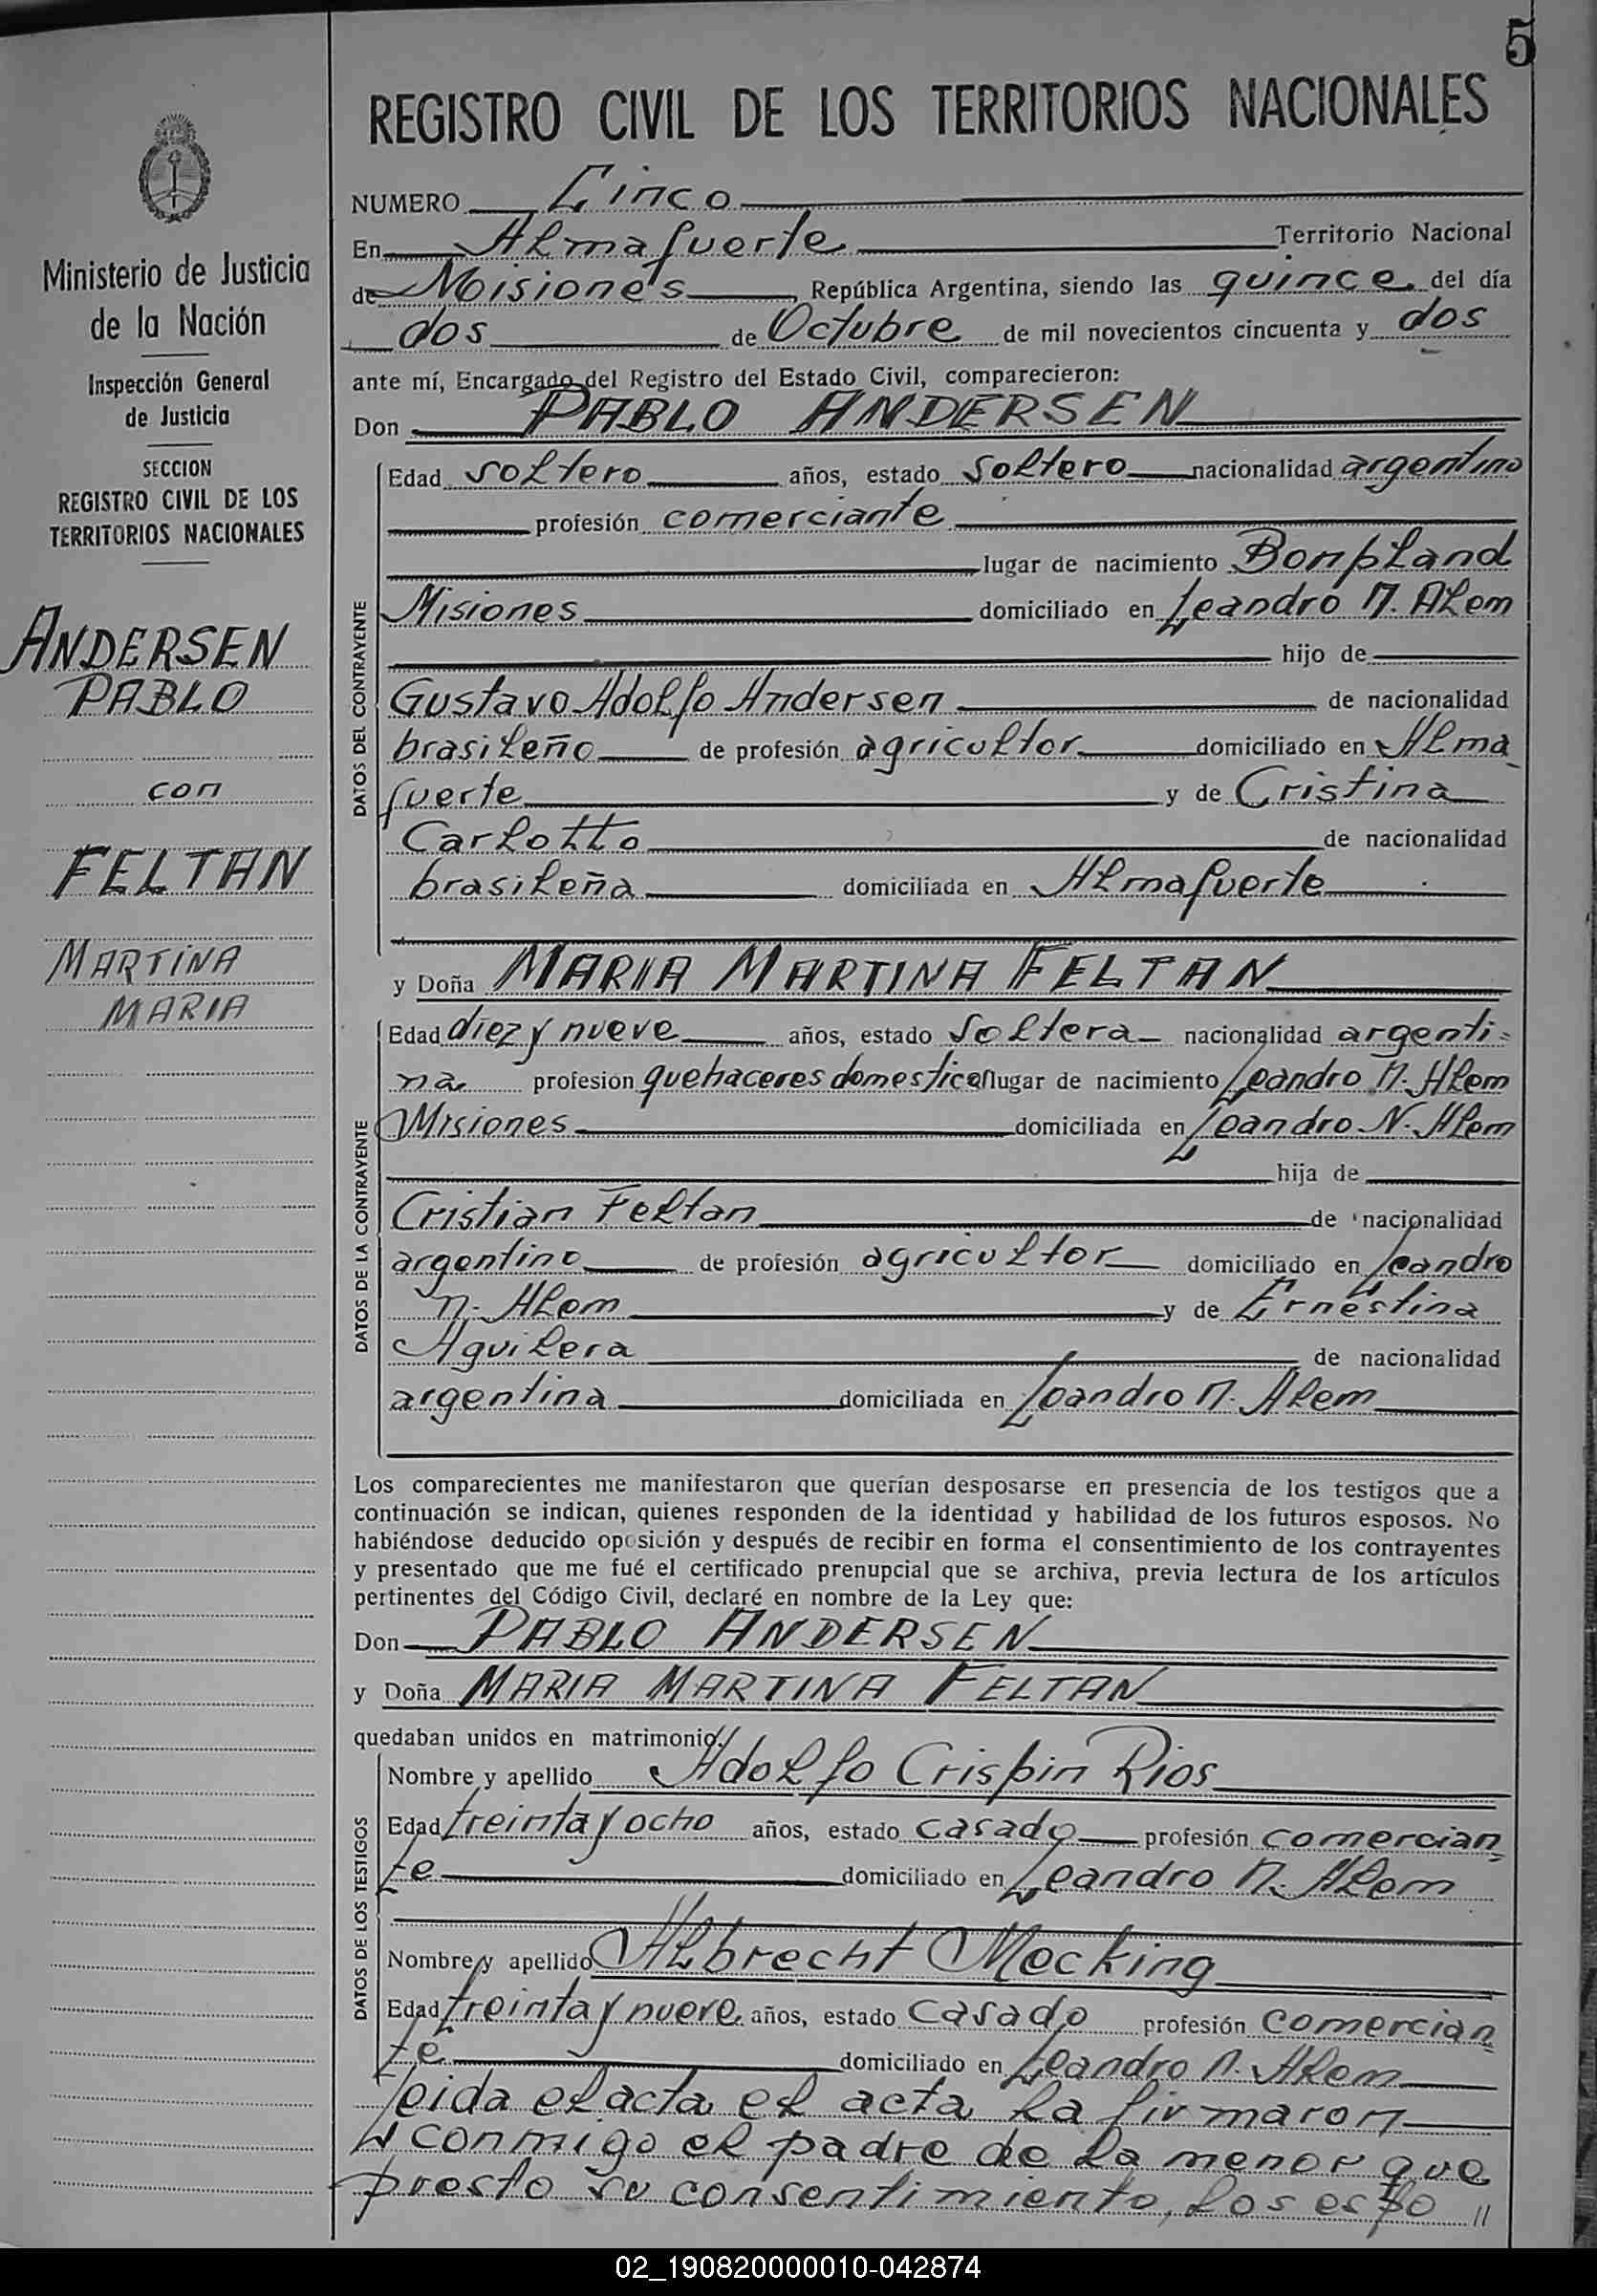 5
REGISTRO CIVIL DE LOS TERRITORIOS NACIONALES
Ministerio de Justicia
de la Nación
Inspección General
de Justicia
SECCION
REGISTRO CIVIL DE LOS
TERRITORIOS NACIONALES
ANDERSEN
PABLO
con
FELTAN
MARTINA
MARIA
NUMERO Cinco
En Almafuerte Territorio Nacional
de Misiones, República Argentina, siendo las quince del día
dos de Octubre de mil novecientos cincuenta y dos
ante mí, Encargado del Registro del Estado Civil, comparecieron:
Don PABLO ANDERSEN
DATOS DEL CONTRAYENTE
Edad soltero años, estado soltero nacionalidad argentino
profesión comerciante
lugar de nacimiento Bonpland
Misiones domiciliado en Leandro N. Alem
hijo de
Gustavo Adolfo Andersen de nacionalidad
brasileño de profesión agricultor domiciliado en Alma
fuerte y de Cristina
Carlotto de nacionalidad
brasileña domiciliada en Almafuerte
y Doña MARIA MARTINA FELTAN
DATOS DE LA CONTRAYENTE
Edad diez y nueve años, estado soltera nacionalidad argenti=
na profesión quehaceres domesticos lugar de nacimiento Leandro N. Alem
Misiones domiciliada en Leandro N. Alem
hija de
Cristian Feltan de nacionalidad
argentino de profesión agricultor domiciliado en Leandro
N. Alem y de Ernestina
Aguilera de nacionalidad
argentina domiciliada en Leandro N. Alem
Los comparecientes me manifestaron que querían desposarse en presencia de los testigos que a
continuación se indican, quienes responden de la identidad y habilidad de los futuros esposos. No
habiéndose deducido oposición y después de recibir en forma el consentimiento de los contrayentes
y presentado que me fué el certificado prenupcial que se archiva, previa lectura de los artículos
pertinentes del Código Civil, declaré en nombre de la Ley que:
Don PABLO ANDERSEN
y Doña MARIA MARTINA FELTAN
quedaban unidos en matrimonio.
DATOS DE LOS TESTIGOS
Nombre y apellido Adolfo Crispin Rios
Edad treinta y ocho años, estado casado profesión comercian=
te domiciliado en Leandro N. Alem
Nombre y apellido Albrecht Mocking
Edad treinta y nueve años, estado casado profesión comercian=
te domiciliado en Leandro N. Alem
Leida el acta el acta la firmaron
conmigo el padre de la menor que
presto su consentimiento, los espo //
02_190820000010-042874